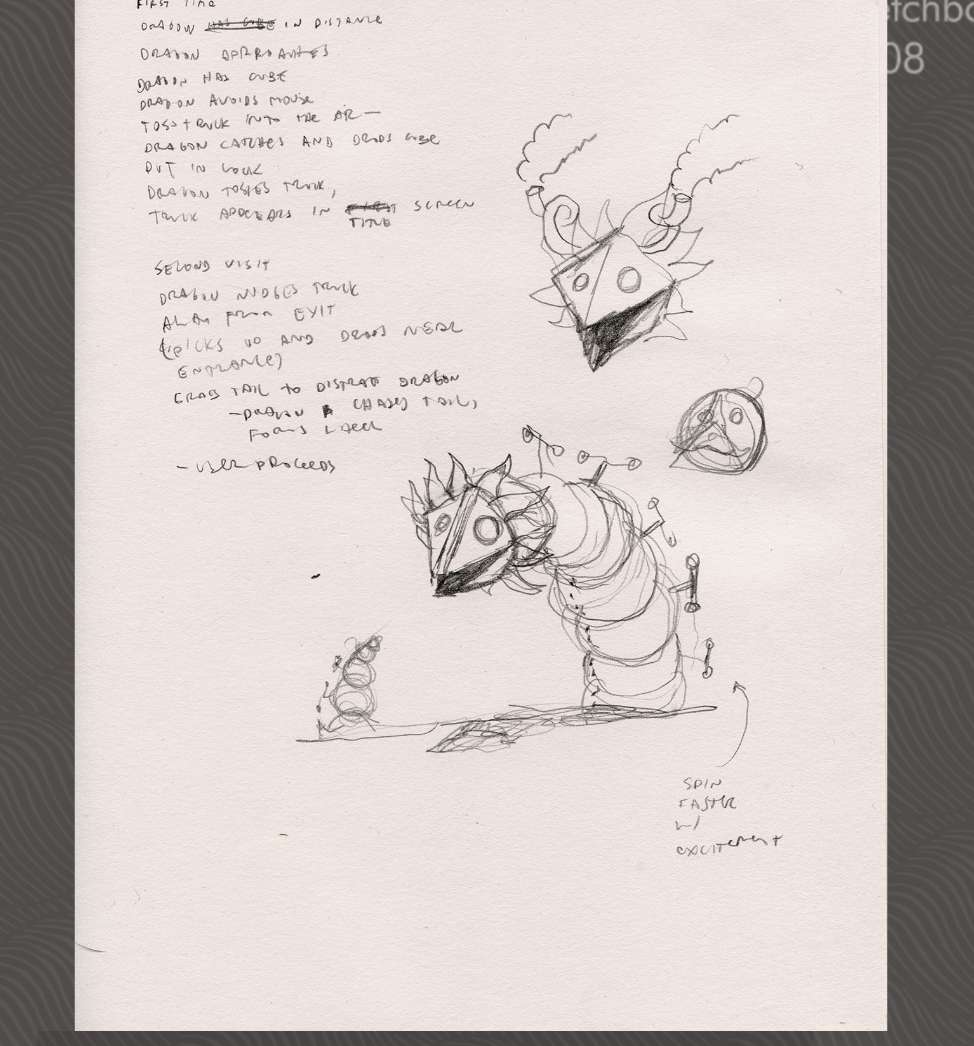 FIRST TIME
DRAGON HAS CUBE IN DISTANCE
DRAGON APPROACHES
DRAGON HAS CUBE
DRAGON AVOIDS MOUSE
TOSS TRUCK INTO THE AIR —
DRAGON CATCHES AND DROPS CUBE
PUT IN LOCK
DRAGON TOSSES TRUCK,
TRUCK APPEARS IN SCREEN
TITLE
SECOND VISIT
DRAGON NUDGES TRUCK
AWAY FROM EXIT
(PICKS UP AND DROPS NEAR
ENTRANCE)
GRAB TAIL TO DISTRACT DRAGON
— DRAGON CHASES TAIL,
FORMS
— USER PROCEEDS
SPIN
FASTER
W/
EXCITEMENT
etchbo
08